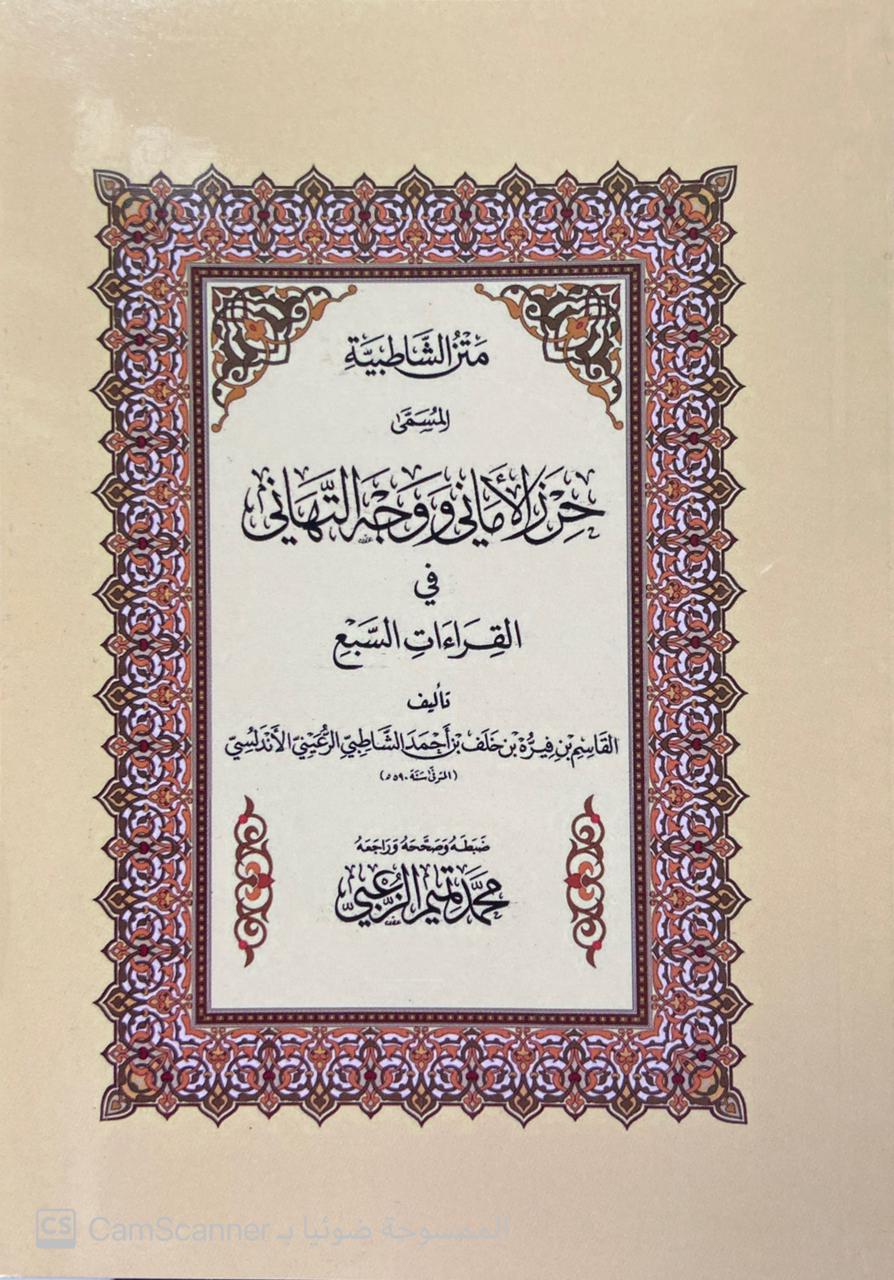 مَتْنُ الشَّاطِبِيَّةِ
المُسَمَّىٰ
حِرْزَ الأَمَانِي وَوَجْهَ التَّهَانِي
فِي
القِرَاءَاتِ السَّبْعِ
تأليف
القَاسِمِ بْنِ فِيرُّهْ بْنِ خَلَفِ بْنِ أَحْمَدَ الشَّاطِبِيِّ الرُّعَيْنِيِّ الأَنْدَلُسِيِّ
(المتوفى سنة ٥٩٠ هـ)
ضَبَطَهُ وَصَحَّحَهُ وَرَاجَعَهُ
محمَّد تميم الزُّعبيّ
الممسوحة ضوئيا بـ CamScanner
CS